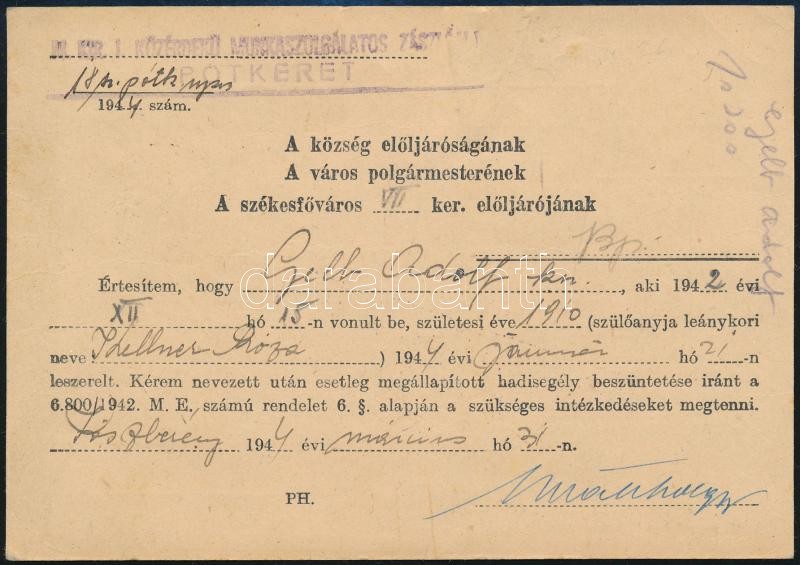 M. KIR. I. KÖZÉRDEKŰ MUNKASZOLGÁLATOS
PÓTKERET
1944. szám.
A község előljáróságának
A város polgármesterének
A székesfőváros VII ker. előljárójának
Bp.
Értesítem, hogy Gelb Adolf kn., aki 1942 évi
XII hó 15-n vonult be, születesi éve 1910 (szülőanyja leánykori
neve Kellner Róza) 1944 évi január hó 21-n
leszerelt. Kérem nevezett után esetleg megállapított hadisegély beszüntetése iránt a
6.800/1942. M. E. számú rendelet 6. §. alapján a szükséges intézkedéseket megtenni.
Jászberény 1944 évi március hó 31-n.
PH.
darabanth